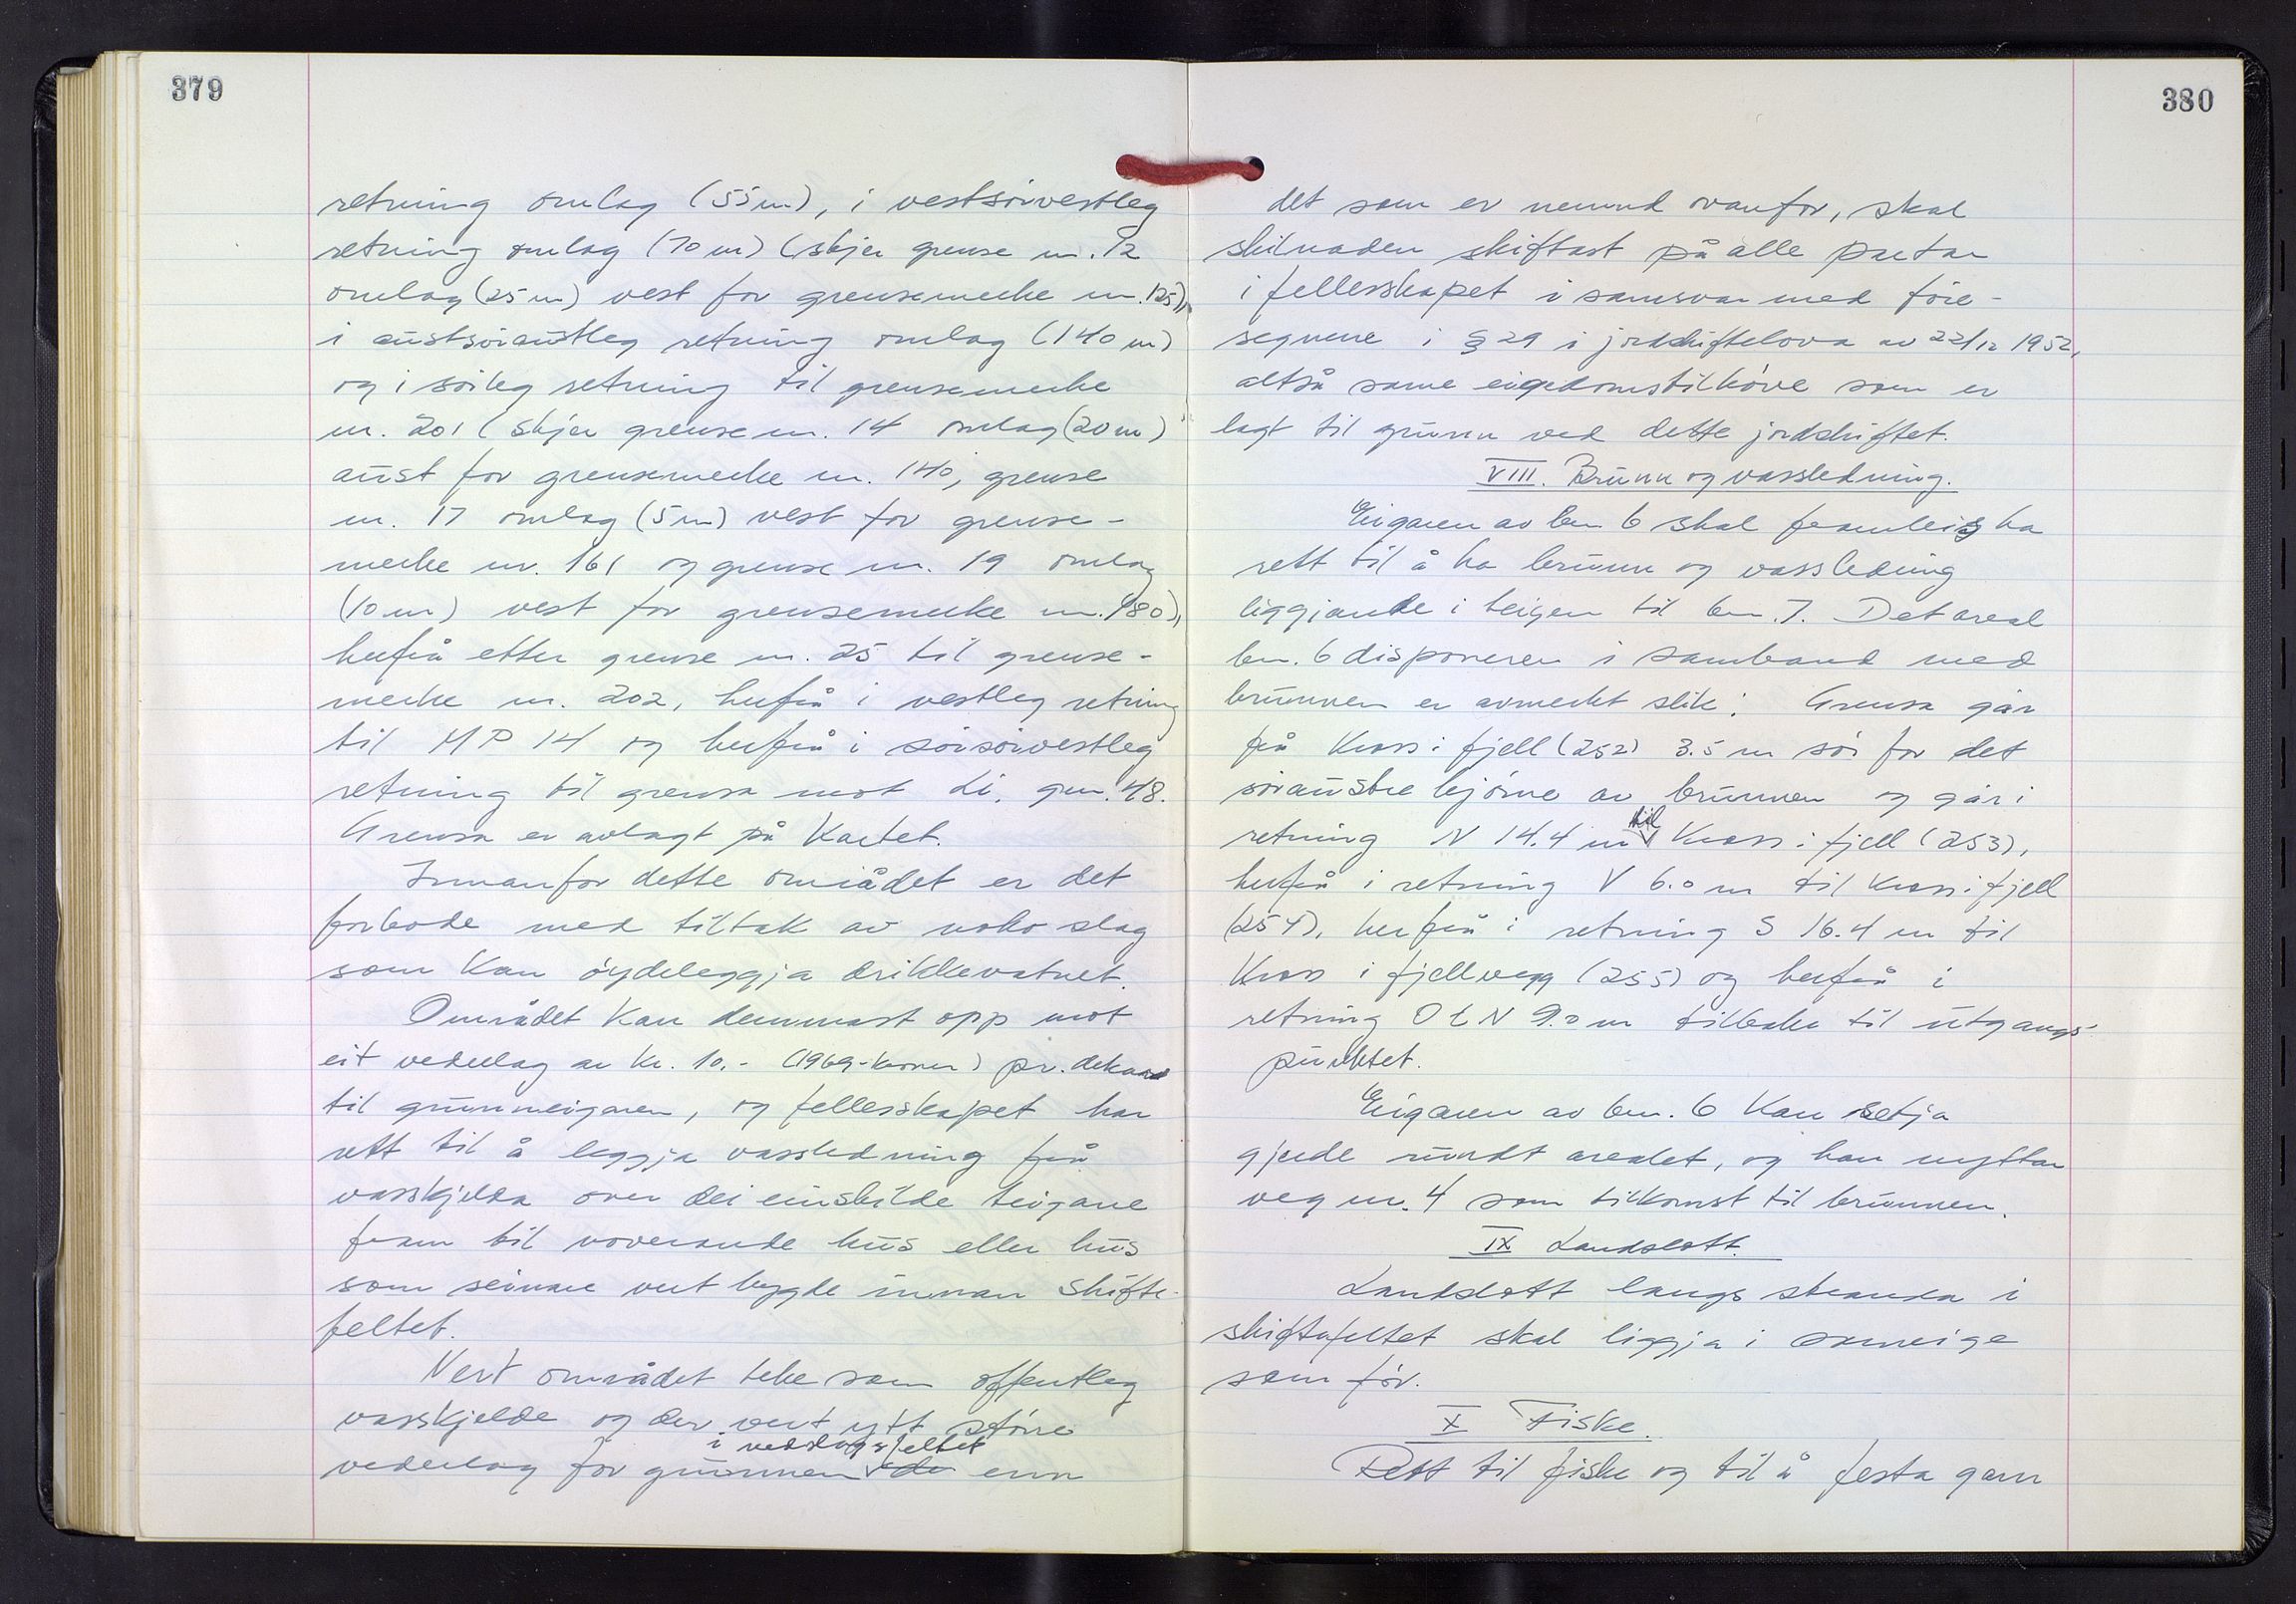 379
retning omlag (55 m), i vestsørvestleg
retning omlag (70 m) (skjer grense nr. 12
omlag (25 m) vest for grensemerke nr. 125),
i austsøraustleg retning omlag (140 m)
og i sørleg retning til grensemerke
nr. 201 (skjer grense nr. 14 omlag (20 m)
aust for grensemerke nr. 140, grense
nr. 17 omlag (5 m) vest for grense-
merke nr. 161 og grense nr. 19 omlag
(10 m) vest for grensemerke nr. 180),
herfrå etter grense nr. 25 til grense-
merke nr. 202, herfrå i vestleg retning
til MP 14 og herfrå i sørsørvestleg
retning til grensa mot Li, gnr. 48.
Grensa er avlagt på kartet.
Innanfor dette området er det
forbode med tiltak av noko slag
som kan øydeleggja drikkevatnet.
Området kan demmast opp mot
eit vederlag av kr. 10.- (1969-kroner) pr. dekar
til grunneigaren, og fellesskapet har
rett til å leggja vassledning frå
vasskjelda over dei einskilde teigane
fram til noverande hus eller hus
som seinare vert bygde innan skifte-
feltet.
Vert området teke som offentleg
vasskjelde og der vert ytt større
i nedslagsfeltet
vederlag for grunnen enn
380
det som er nemnd ovanfor, skal
skilnaden skiftast på alle partar
i fellesskapet i samsvar med føre-
segnene i § 29 i jordskiftelova av 22/12 1952,
altså same eigedomstilhøve som er
lagt til grunn ved dette jordskiftet.
VIII. Brunn og vassledning.
Eigaren av bnr 6 skal framleis ha
rett til å ha brunn og vassledning
liggjande i teigen til bnr. 7. Det areal
bnr. 6 disponerer i samband med
brunnen er avmerkt slik: Grensa går
frå kross i fjell (252) 3.5 m sør for det
søraustre hjørne av brunnen og går i
retning N 14.4 m til kross i fjell (253),
herfrå i retning V 6.0 m til kross i fjell
(254), herfrå i retning S 16.4 m til
kross i fjellvegg (255) og herfrå i
retning O t N 9.0 m tilbake til utgangs-
punktet.
Eigaren av bnr. 6 kan setja
gjerde rundt arealet, og han nyttar
veg nr. 4 som tilkomst til brunnen.
IX Landslott.
Landslott langs stranda i
skiftefeltet skal liggja i sameige
som før.
X Fiske.
Rett til fiske og til å festa garn